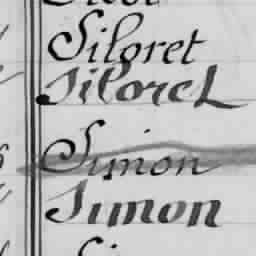 Siloret
Siloret
Simon
Simon